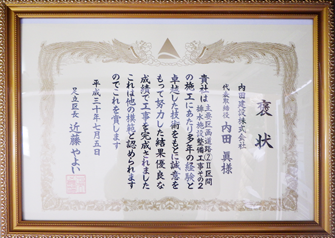 褒状
内田建設株式会社
代表取締役 内田 眞様
貴社は主要区画道路②Ⅱ区間
排水施設整備工事その2
の施工にあたり多年の経験と
卓越した技術をもとに誠意を
もって努力した結果優良な
成績で工事を完成されました
これは他の模範と認められます
のでこれを賞します
平成三十年七月五日
足立区長 近藤やよい